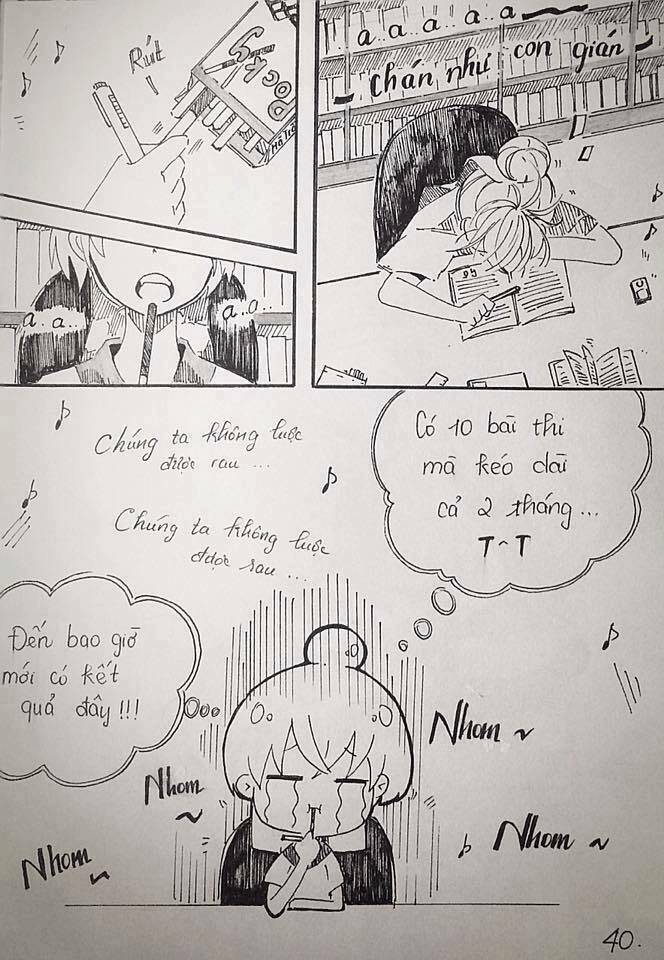 Rút
Pocky
a a a a..a
chán như con gián
a..a..
a..a..
Chúng ta không luộc
được rau ...
Chúng ta không luộc
được rau ...
Có 10 bài thi
mà kéo dài
cả 2 tháng...
T^T
Đến bao giờ
mới có kết
quả đây!!!
Nhom ~
Nhom
~
Nhom ~
Nhom ~
40.